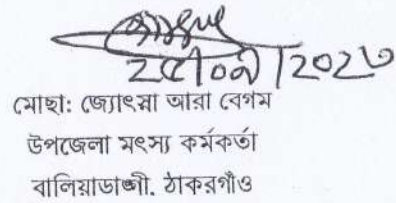 ২৫/০৯/২০২৩
মোছা: জ্যোৎস্না আরা বেগম
উপজেলা মৎস্য কর্মকর্তা
বালিয়াডাঙ্গী, ঠাকুরগাঁও